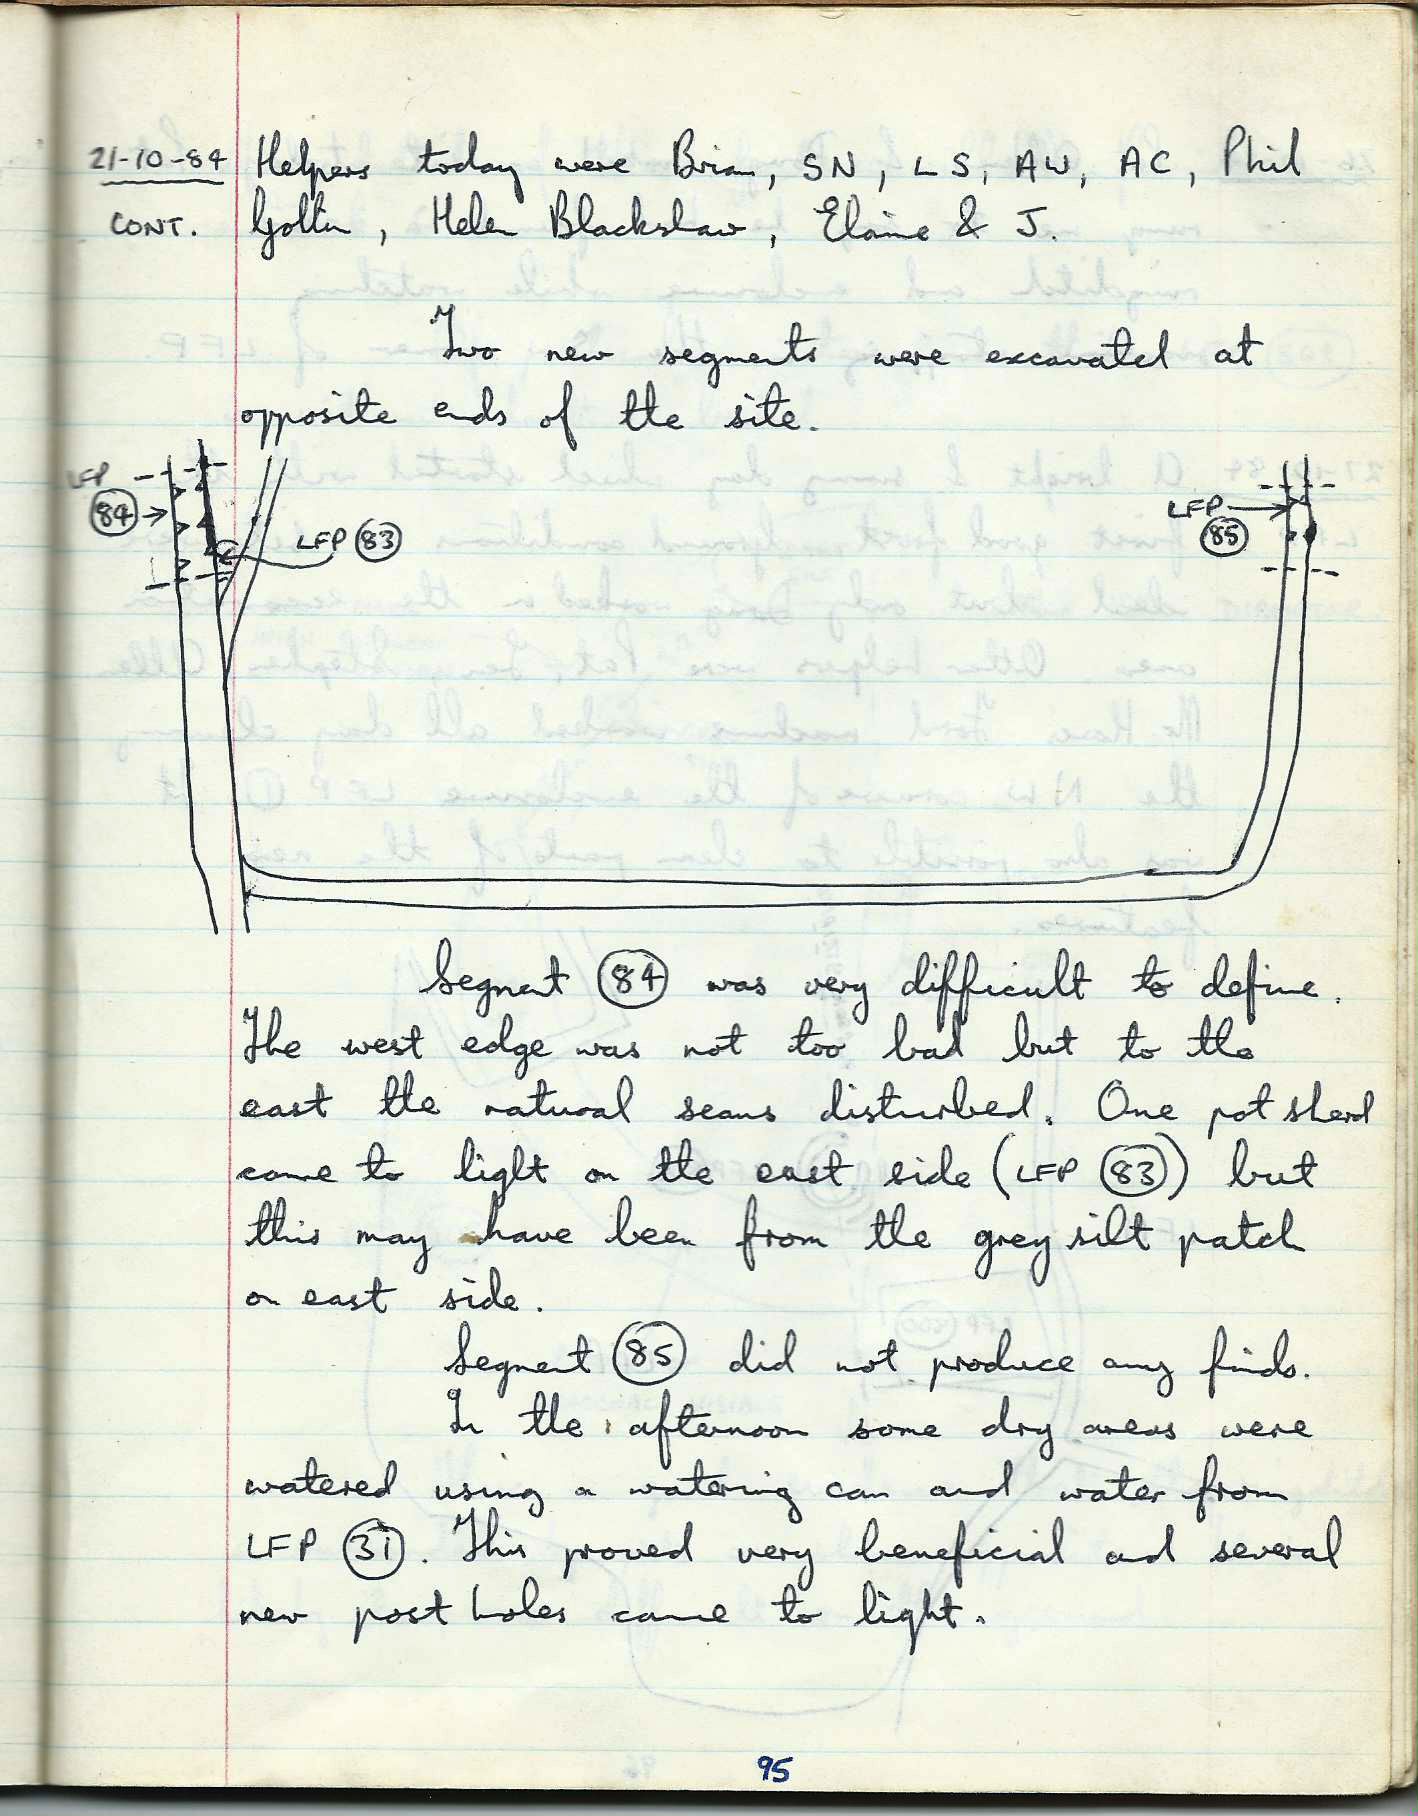 21-10-84 Helpers today were Brian, SN, LS, AW, AC, Phil
CONT. , Helen Blackshaw, Elaine & J.
Two new segments were excavated at
opposite ends of the site.
LFP
84
LFP 83
LFP
85
Segment 84 was very difficult to define.
The west edge was not too bad but to the
east the natural seams disturbed. One pot sherd
came to light on the east side (LFP 83) but
this may have been from the grey silt patch
on east side.
Segment 85 did not produce any finds.
In the afternoon some dry areas were
watered using a watering can and water from
LFP 31. This proved very beneficial and several
new post holes came to light.
95